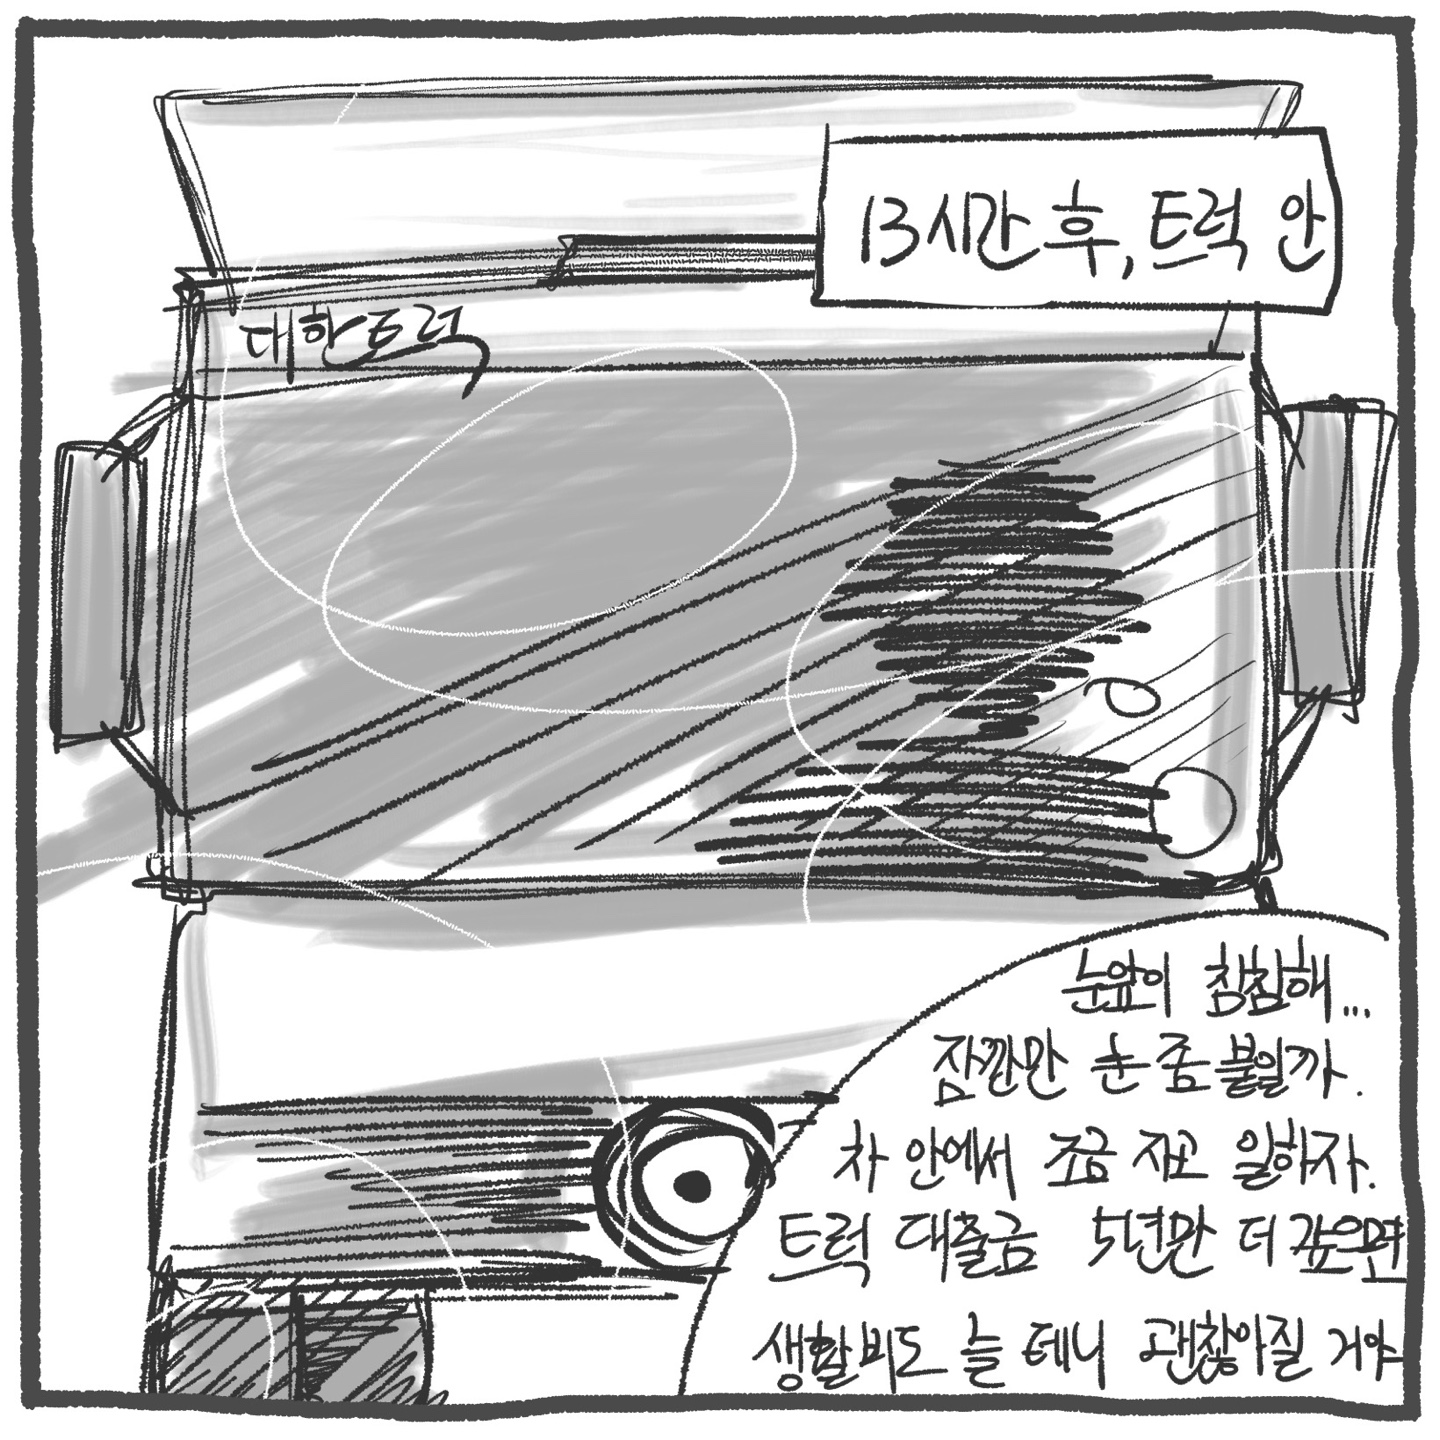 13시간 후, 트럭 안
대한트럭
눈앞이 침침해...
잠깐만 눈 좀 붙일까.
차 안에서 조금 자고 일하자.
트럭 대출금 5년만 더 갚으면
생활비도 늘 테니 괜찮아질 거야